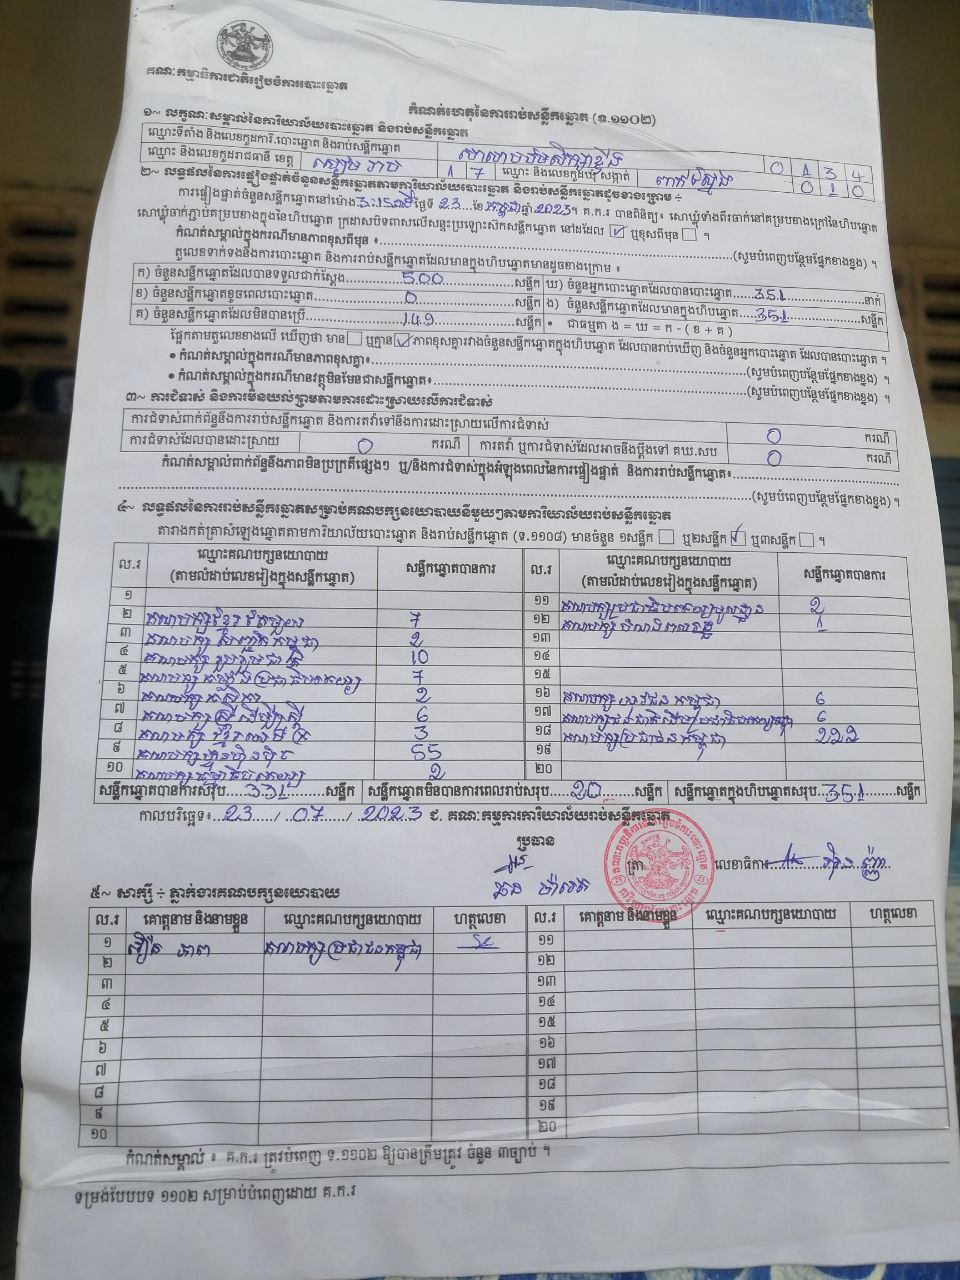 គណៈកម្មាធិការជាតិរៀបចំការបោះឆ្នោត
កំណត់ហេតុនៃការរាប់សន្លឹកឆ្នោត (ទ.១១០២)
១~ លក្ខណៈសម្គាល់នៃការិយាល័យបោះឆ្នោត និងរាប់សន្លឹកឆ្នោត
ឈ្មោះទីតាំង និងលេខកូដការិ.បោះឆ្នោត និងរាប់សន្លឹកឆ្នោត 0 1 3 4
ឈ្មោះ និងលេខកូដរាជធានី ខេត្ត សៀមរាប 1 7 ឈ្មោះ និងលេខកូដឃុំ សង្កាត់ 0 1 0
២~ លទ្ធផលនៃការផ្ទៀងផ្ទាត់ចំនួនសន្លឹកឆ្នោតតាមការិយាល័យបោះឆ្នោត និងរាប់សន្លឹកឆ្នោតដូចខាងក្រោម ÷
ការផ្ទៀងផ្ទាត់ចំនួនសន្លឹកឆ្នោតនៅម៉ោង 3:15នាទី ថ្ងៃទី 23 ខែ កក្កដា ឆ្នាំ 2023។ គ.ក.រ បានពិនិត្យ៖ សោឃ្លុំទាំងពីរចាក់នៅគម្របខាងក្រៅនៃហិបឆ្នោត
សោឃ្លុំចាក់ភ្ជាប់គម្របខាងក្នុងនៃហិបឆ្នោត ក្រដាសបិទពាសលើសន្ទះប្រឡោះស៊កសន្លឹកឆ្នោត នៅដដែល ☑ ឬខុសពីមុន ☐ ។
កំណត់សម្គាល់ក្នុងករណីមានភាពខុសពីមុន ៖ (សូមបំពេញបន្ថែមផ្នែកខាងខ្នង) ។
តួលេខទាក់ទងនឹងការបោះឆ្នោត និងការរាប់សន្លឹកឆ្នោតដែលមានក្នុងហិបឆ្នោតមានដូចខាងក្រោម ៖
ក) ចំនួនសន្លឹកឆ្នោតដែលបានទទួលជាក់ស្តែង 500 សន្លឹក ឃ) ចំនួនអ្នកបោះឆ្នោតដែលបានបោះឆ្នោត 351 នាក់
ខ) ចំនួនសន្លឹកឆ្នោតខូចពេលបោះឆ្នោត 0 សន្លឹក ង) ចំនួនសន្លឹកឆ្នោតដែលមានក្នុងហិបឆ្នោត 351 សន្លឹក
គ) ចំនួនសន្លឹកឆ្នោតដែលមិនបានប្រើ 149 សន្លឹក • ជាធម្មតា ង = ឃ = ក - ( ខ + គ )
ផ្អែកតាមតួលេខខាងលើ ឃើញថា មាន ☐ ឬគ្មាន ☑ ភាពខុសគ្នារវាងចំនួនសន្លឹកឆ្នោតក្នុងហិបឆ្នោត ដែលបានរាប់ឃើញ និងចំនួនអ្នកបោះឆ្នោត ដែលបានបោះឆ្នោត ។
• កំណត់សម្គាល់ក្នុងករណីមានភាពខុសគ្នា៖ (សូមបំពេញបន្ថែមផ្នែកខាងខ្នង) ។
• កំណត់សម្គាល់ក្នុងករណីមានវត្ថុមិនមែនជាសន្លឹកឆ្នោត៖ (សូមបំពេញបន្ថែមផ្នែកខាងខ្នង) ។
៣~ ការជំទាស់ និងការមិនយល់ព្រមតាមការដោះស្រាយលើការជំទាស់
ការជំទាស់ពាក់ព័ន្ធនឹងការរាប់សន្លឹកឆ្នោត និងការតវ៉ាទៅនឹងការដោះស្រាយលើការជំទាស់ 0 ករណី
ការជំទាស់ដែលបានដោះស្រាយ 0 ករណី ការតវ៉ា ឬការជំទាស់ដែលអាចនឹងប្តឹងទៅ គឃ.សប 0 ករណី
កំណត់សម្គាល់ពាក់ព័ន្ធនឹងភាពមិនប្រក្រតីផ្សេងៗ ឬ/និងការជំទាស់ក្នុងអំឡុងពេលនៃការផ្ទៀងផ្ទាត់ និងការរាប់សន្លឹកឆ្នោត៖
(សូមបំពេញបន្ថែមផ្នែកខាងខ្នង) ។
៤~ លទ្ធផលនៃការរាប់សន្លឹកឆ្នោតសម្រាប់គណបក្សនយោបាយនីមួយៗតាមការិយាល័យរាប់សន្លឹកឆ្នោត
តារាងកត់ត្រាសំឡេងឆ្នោតតាមការិយាល័យបោះឆ្នោត និងរាប់សន្លឹកឆ្នោត (ទ.១១០៨) មានចំនួន ១សន្លឹក ☐ ឬ២សន្លឹក ☑ ឬ៣សន្លឹក ☐ ។
ល.រ ឈ្មោះគណបក្សនយោបាយ (តាមលំដាប់លេខរៀងក្នុងសន្លឹកឆ្នោត) សន្លឹកឆ្នោតបានការ ល.រ ឈ្មោះគណបក្សនយោបាយ (តាមលំដាប់លេខរៀងក្នុងសន្លឹកឆ្នោត) សន្លឹកឆ្នោតបានការ
១ ១១ គណបក្សប្រជាធិបតេយ្យមូលដ្ឋាន 2
២ គណបក្ស 7 ១២ គណបក្ស 1
៣ គណបក្ស សញ្ជាតិកម្ពុជា 2 ១៣
៤ គណបក្ស រួបរួមជាតិ 10 ១៤
៥ គណបក្ស កម្លាំងប្រជាធិបតេយ្យ 7 ១៥
៦ គណបក្ស កសិករ 2 ១៦ គណបក្ស យុវជនកម្ពុជា 6
៧ គណបក្ស ស្ត្រីដើម្បីស្ត្រី 6 ១៧ 6
៨ គណបក្ស ខ្មែរ 3 ១៨ គណបក្សប្រជាជនកម្ពុជា 222
៩ គណបក្សហ៊្វុនស៊ិនប៉ិច 55 ១៩
១០ គណបក្សធម្មាធិបតេយ្យ 2 ២០
សន្លឹកឆ្នោតបានការសរុប 331 សន្លឹក សន្លឹកឆ្នោតមិនបានការពេលរាប់សរុប 20 សន្លឹក សន្លឹកឆ្នោតក្នុងហិបឆ្នោតសរុប 351 សន្លឹក
កាលបរិច្ឆេទ៖ 23 / 07 / 2023 ជ. គណៈកម្មការការិយាល័យរាប់សន្លឹកឆ្នោត
ប្រធាន
ត្រា លេខាធិការ
៥~ សាក្សី ÷ ភ្នាក់ងារគណបក្សនយោបាយ
ល.រ គោត្តនាម និងនាមខ្លួន ឈ្មោះគណបក្សនយោបាយ ហត្ថលេខា ល.រ គោត្តនាម និងនាមខ្លួន ឈ្មោះគណបក្សនយោបាយ ហត្ថលេខា
១ គណបក្សប្រជាជនកម្ពុជា ១១
២ ១២
៣ ១៣
៤ ១៤
៥ ១៥
៦ ១៦
៧ ១៧
៨ ១៨
៩ ១៩
១០ ២០
កំណត់សម្គាល់ ៖ គ.ក.រ ត្រូវបំពេញ ទ.១១០២ ឱ្យបានត្រឹមត្រូវ ចំនួន ៣ច្បាប់ ។
ទម្រង់បែបបទ ១១០២ សម្រាប់បំពេញដោយ គ.ក.រ